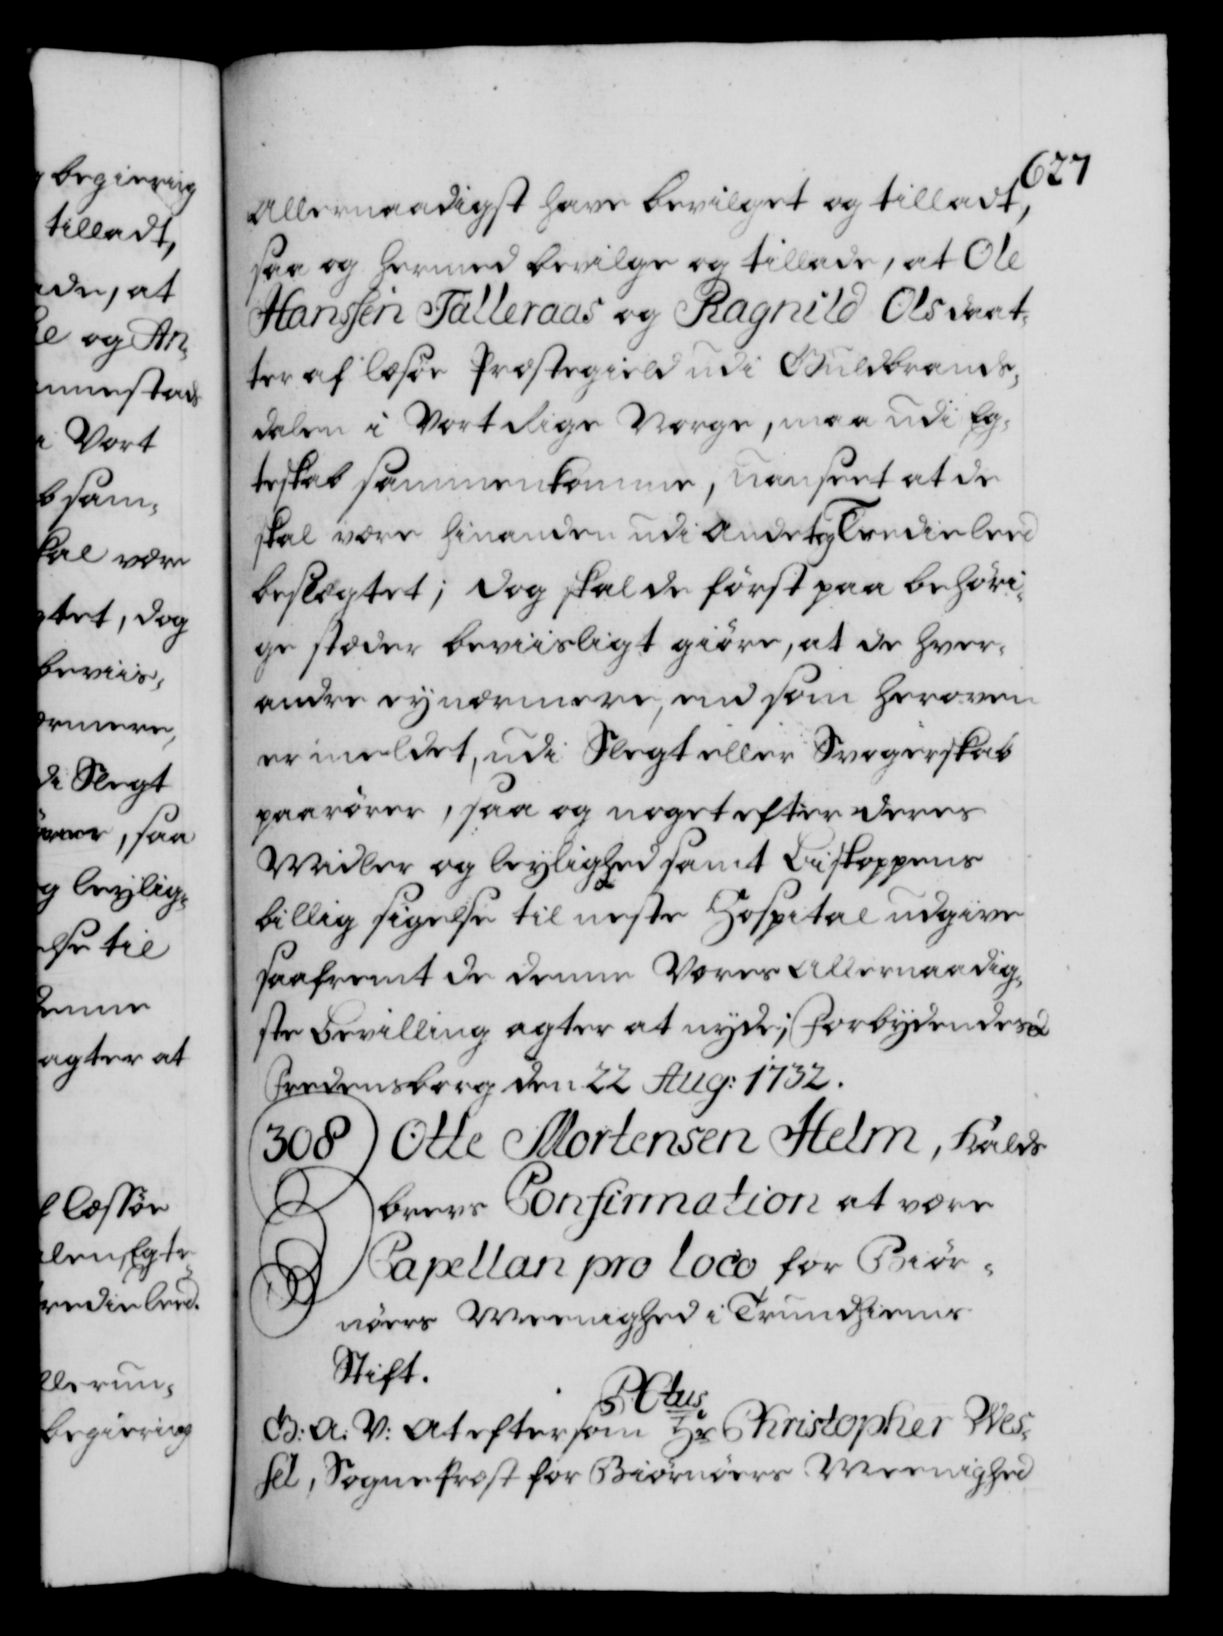 627
Allernaadigst have bevilget og tilladt,
saa og hermed bevilge og tillade, at Ole
Hanssen Talleraas og Ragnild Olsdaat-
ter af Læsöe Præstegield udi Guldbrands-
dalen i Vort Rige Norge, maa udi Eg-
teskab sammenkomme, uanseet at de
skal være hinanden udi Andet og Tredie Leed
beslægtet; dog skal de först paa behöri-
ge stæder beviisligt giöre, at de hver-
andre ey nærmere, end som heroven
er meldet, udi Slegt eller Svogerskab
paarörer, saa og noget efter deres
Midler og leylighed samt Biskoppens
billig sigelse til neste Hospital udgive
saafremt de denne Vores Allernaadig-
ste Bevilling agter at nyde; Forbydendes &
Fredensborg den 22 Aug: 1732.
308) Otte Mortensen Helm, Kalds-
brevs Confirmation at være
Capellan pro Loco for Biör-
nöers Meenighed i Trundhiems
Stift.
PCtus.
G: A: V: At eftersom Hr Christopher Wes-
sel, Sognepræst for Biörnöers Meenighed
begiering
tilladt,
ade, at
le og An-
unnestads
i Vort
b sam-
kal være
gtet, dog
beviis-
ærmere,
di Slegt
örer, saa
g leylig-
else til
denne
agter at
l Læssöe
alen, Egte-
tredie leed.
llerun-
begiering